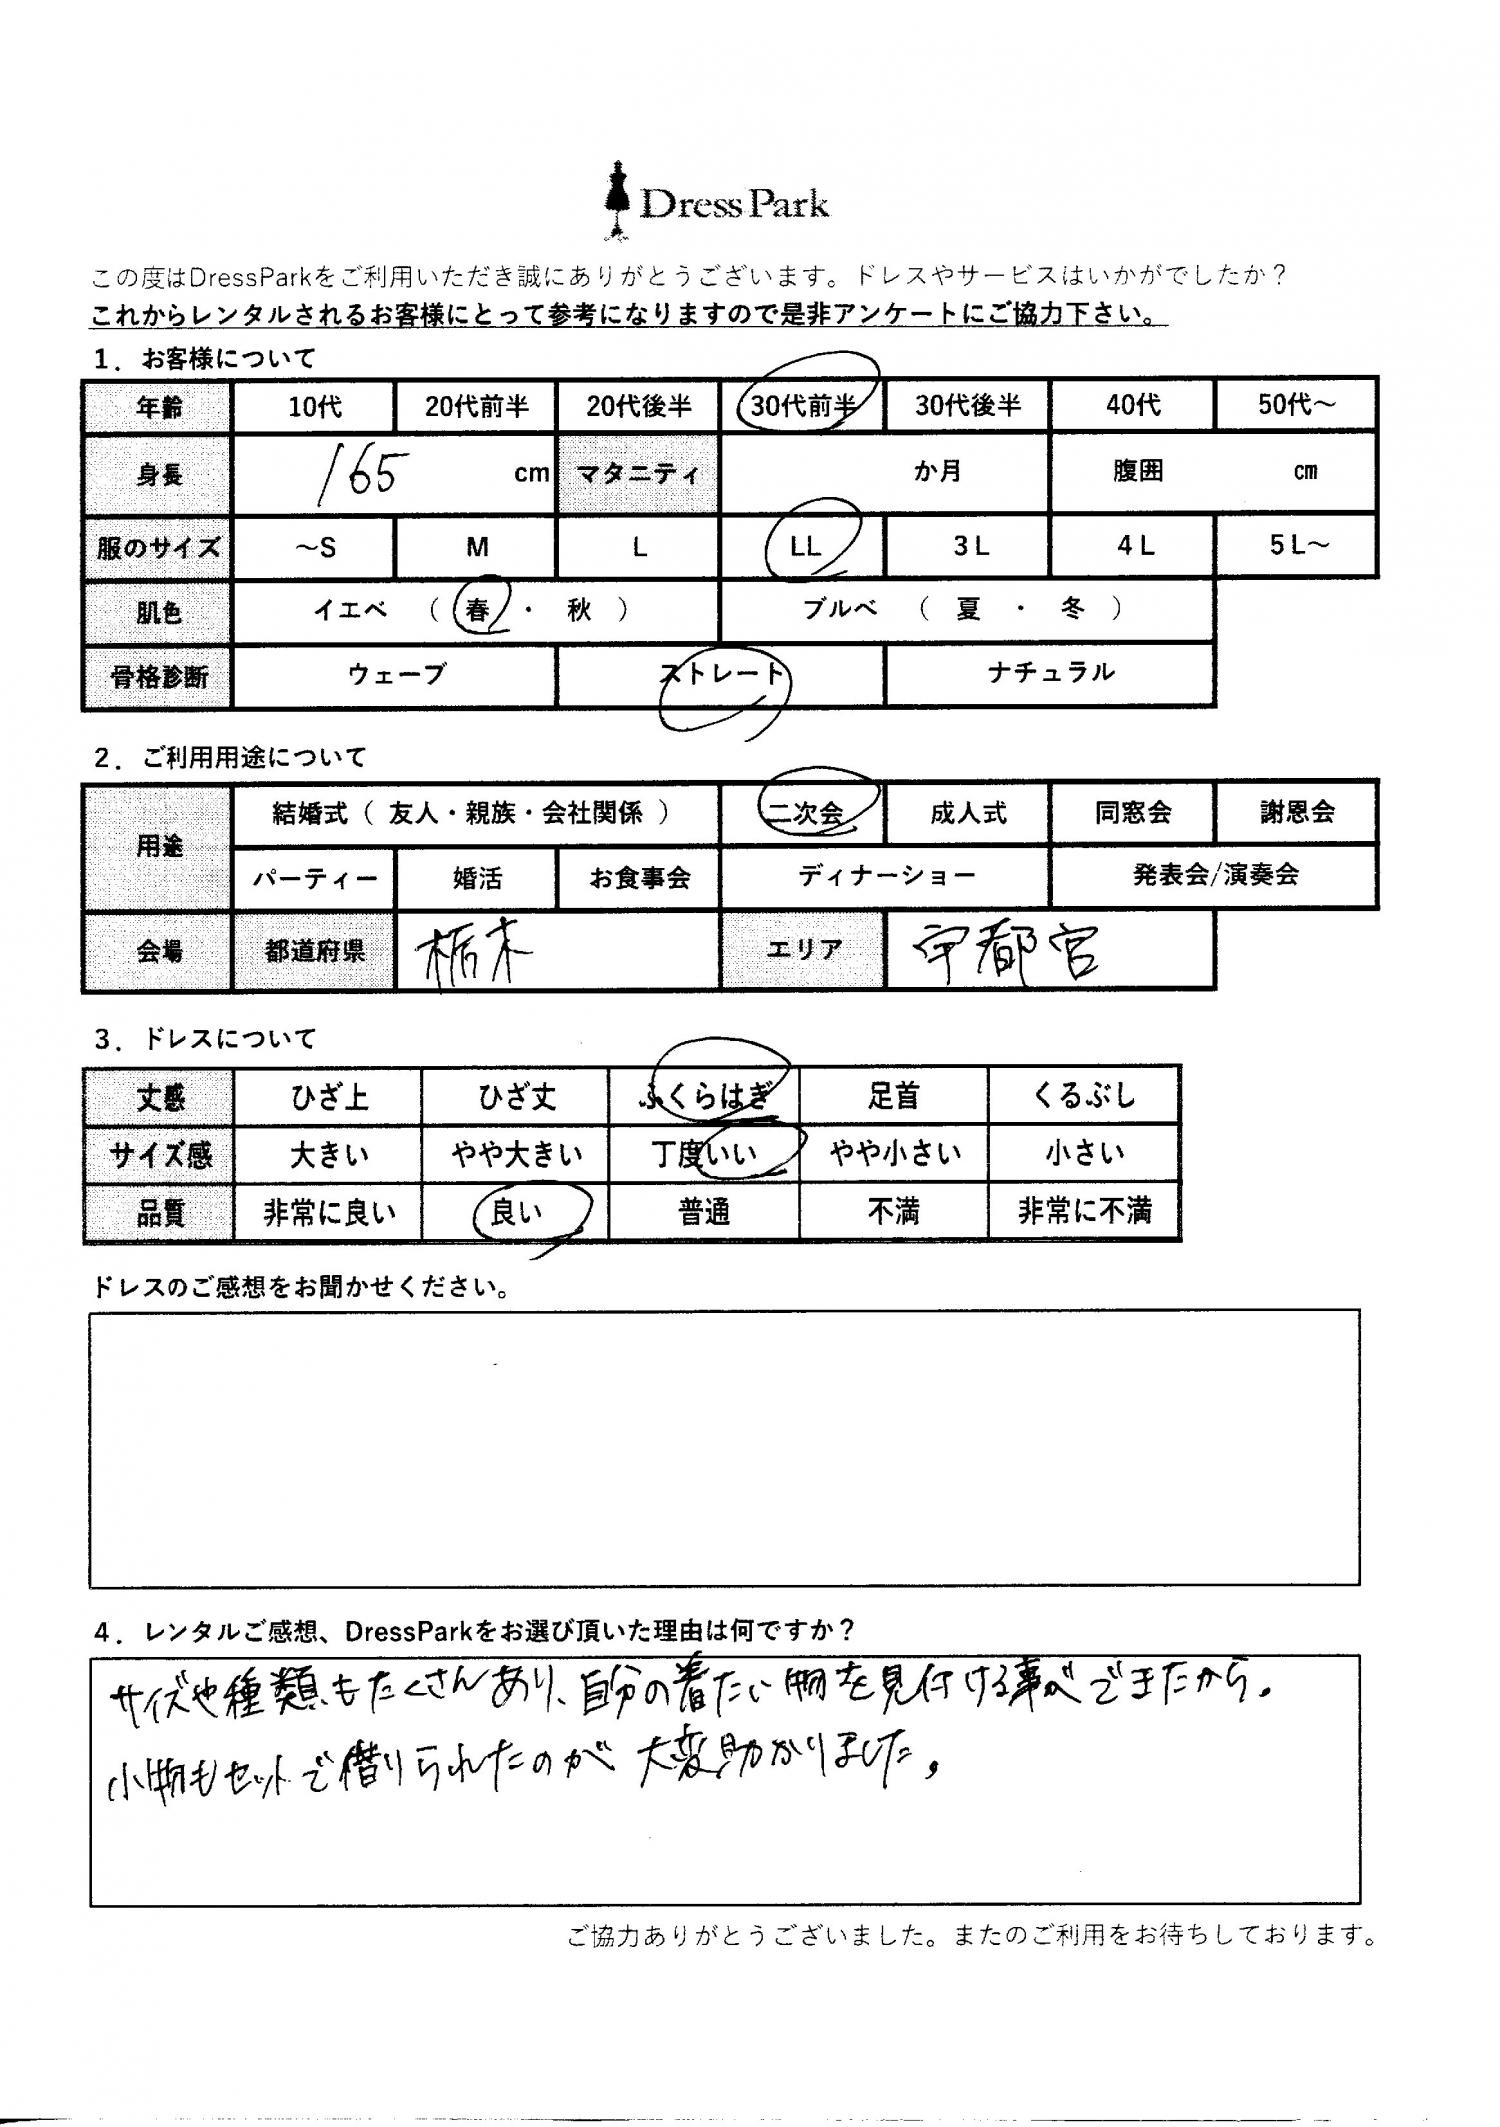 Dress Park
この度はDressParkをご利用いただき誠にありがとうございます。ドレスやサービスはいかがでしたか？
これからレンタルされるお客様にとって参考になりますので是非アンケートにご協力下さい。
1．お客様について
年齢 10代 20代前半 20代後半 30代前半 30代後半 40代 50代～
身長 165 cm マタニティ か月 腹囲 cm
服のサイズ ～S M L LL 3L 4L 5L～
肌色 イエベ （ 春 ・ 秋 ） ブルベ （ 夏 ・ 冬 ）
骨格診断 ウェーブ ストレート ナチュラル
2．ご利用用途について
用途 結婚式（ 友人・親族・会社関係 ） 二次会 成人式 同窓会 謝恩会
パーティー 婚活 お食事会 ディナーショー 発表会/演奏会
会場 都道府県 栃木 エリア 宇都宮
3．ドレスについて
丈感 ひざ上 ひざ丈 ふくらはぎ 足首 くるぶし
サイズ感 大きい やや大きい 丁度いい やや小さい 小さい
品質 非常に良い 良い 普通 不満 非常に不満
ドレスのご感想をお聞かせください。
4．レンタルご感想、DressParkをお選び頂いた理由は何ですか？
サイズや種類もたくさんあり、自分の着たい物を見付ける事ができたから。
小物もセットで借りられたのが大変助かりました。
ご協力ありがとうございました。またのご利用をお待ちしております。